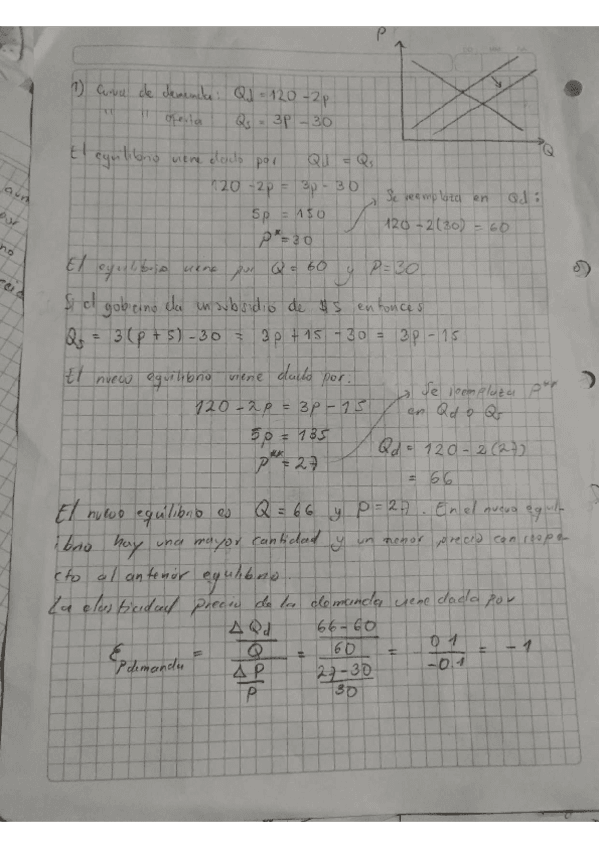 P
Q
1) Curva de demanda: Qd = 120 - 2p
" " oferta: Qs = 3p - 30
El equilibrio viene dado por Qd = Qs
120 - 2p = 3p - 30
5p = 150
p* = 30
Se reemplaza en Qd:
120 - 2(30) = 60
El equilibrio viene por Q = 60 y P = 30
Si el gobierno da un subsidio de $5 entonces
Qs = 3(p + 5) - 30 = 3p + 15 - 30 = 3p - 15
El nuevo equilibrio viene dado por:
120 - 2p = 3p - 15
5p = 135
p** = 27
Se reemplaza p**
en Qd o Qs
Qd = 120 - 2(27)
= 66
El nuevo equilibrio es Q = 66 y P = 27. En el nuevo equil-
ibrio hay una mayor cantidad y un menor precio con respe-
cto al anterior equilibrio.
La elasticidad precio de la demanda viene dada por
Ep demanda = ΔQd/Q / ΔP/P = 66-60/60 / 27-30/30 = 0.1/-0.1 = -1